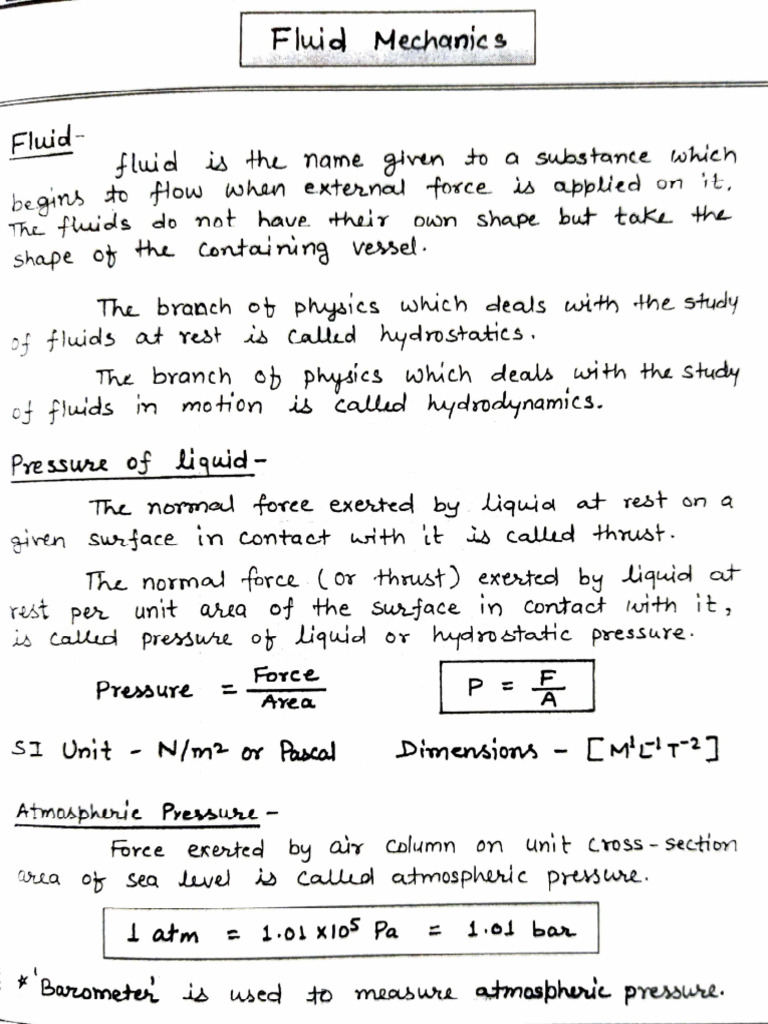 Fluid Mechanics
Fluid-
fluid is the name given to a substance which
begins to flow when external force is applied on it.
The fluids do not have their own shape but take the
shape of the containing vessel.
The branch of physics which deals with the study
of fluids at rest is called hydrostatics.
The branch of physics which deals with the study
of fluids in motion is called hydrodynamics.
Pressure of liquid-
The normal force exerted by liquid at rest on a
given surface in contact with it is called thrust.
The normal force (or thrust) exerted by liquid at
rest per unit area of the surface in contact with it,
is called pressure of liquid or hydrostatic pressure.
Pressure = Force/Area P = F/A
SI Unit - N/m² or Pascal Dimensions - [M¹L⁻¹T⁻²]
Atmospheric Pressure-
Force exerted by air column on unit cross-section
area of sea level is called atmospheric pressure.
1 atm = 1.01 x10⁵ Pa = 1.01 bar
* 'Barometer' is used to measure atmospheric pressure.